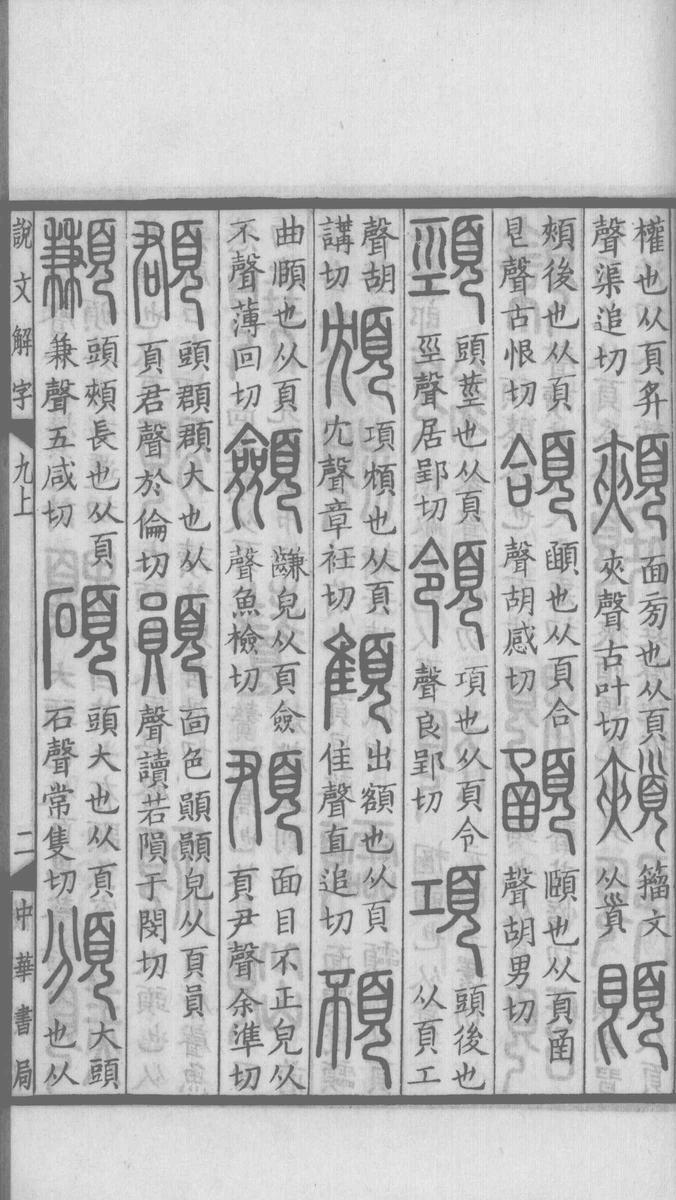 權也从頁𢍏聲渠追切 頰 面㫄也从頁夾聲古叶切 𩓣 籒文从𩠐 頣
頰後也从頁皀聲古恨切 頜 顄也从頁合聲胡感切 顄 頤也从頁圅聲胡男切
頸 頭莖也从頁巠聲居郢切 領 項也从頁令聲良郢切 項 頭後也从頁工
聲胡講切 䪴 項煩也从頁冘聲章衽切 顀 出額也从頁隹聲直追切 䪹
曲頤也从頁不聲薄回切 顩 䶢皃从頁僉聲魚檢切 䪳 面目不正皃从頁尹聲余準切
頵 頭頵頵大也从頁君聲於倫切 䫟 面色䫟䫟皃从頁員聲讀若隕于閔切
䫡 頭頰長也从頁兼聲五咸切 碩 頭大也从頁石聲常隻切 頒 大頭也从
說文解字 九上 二 中華書局